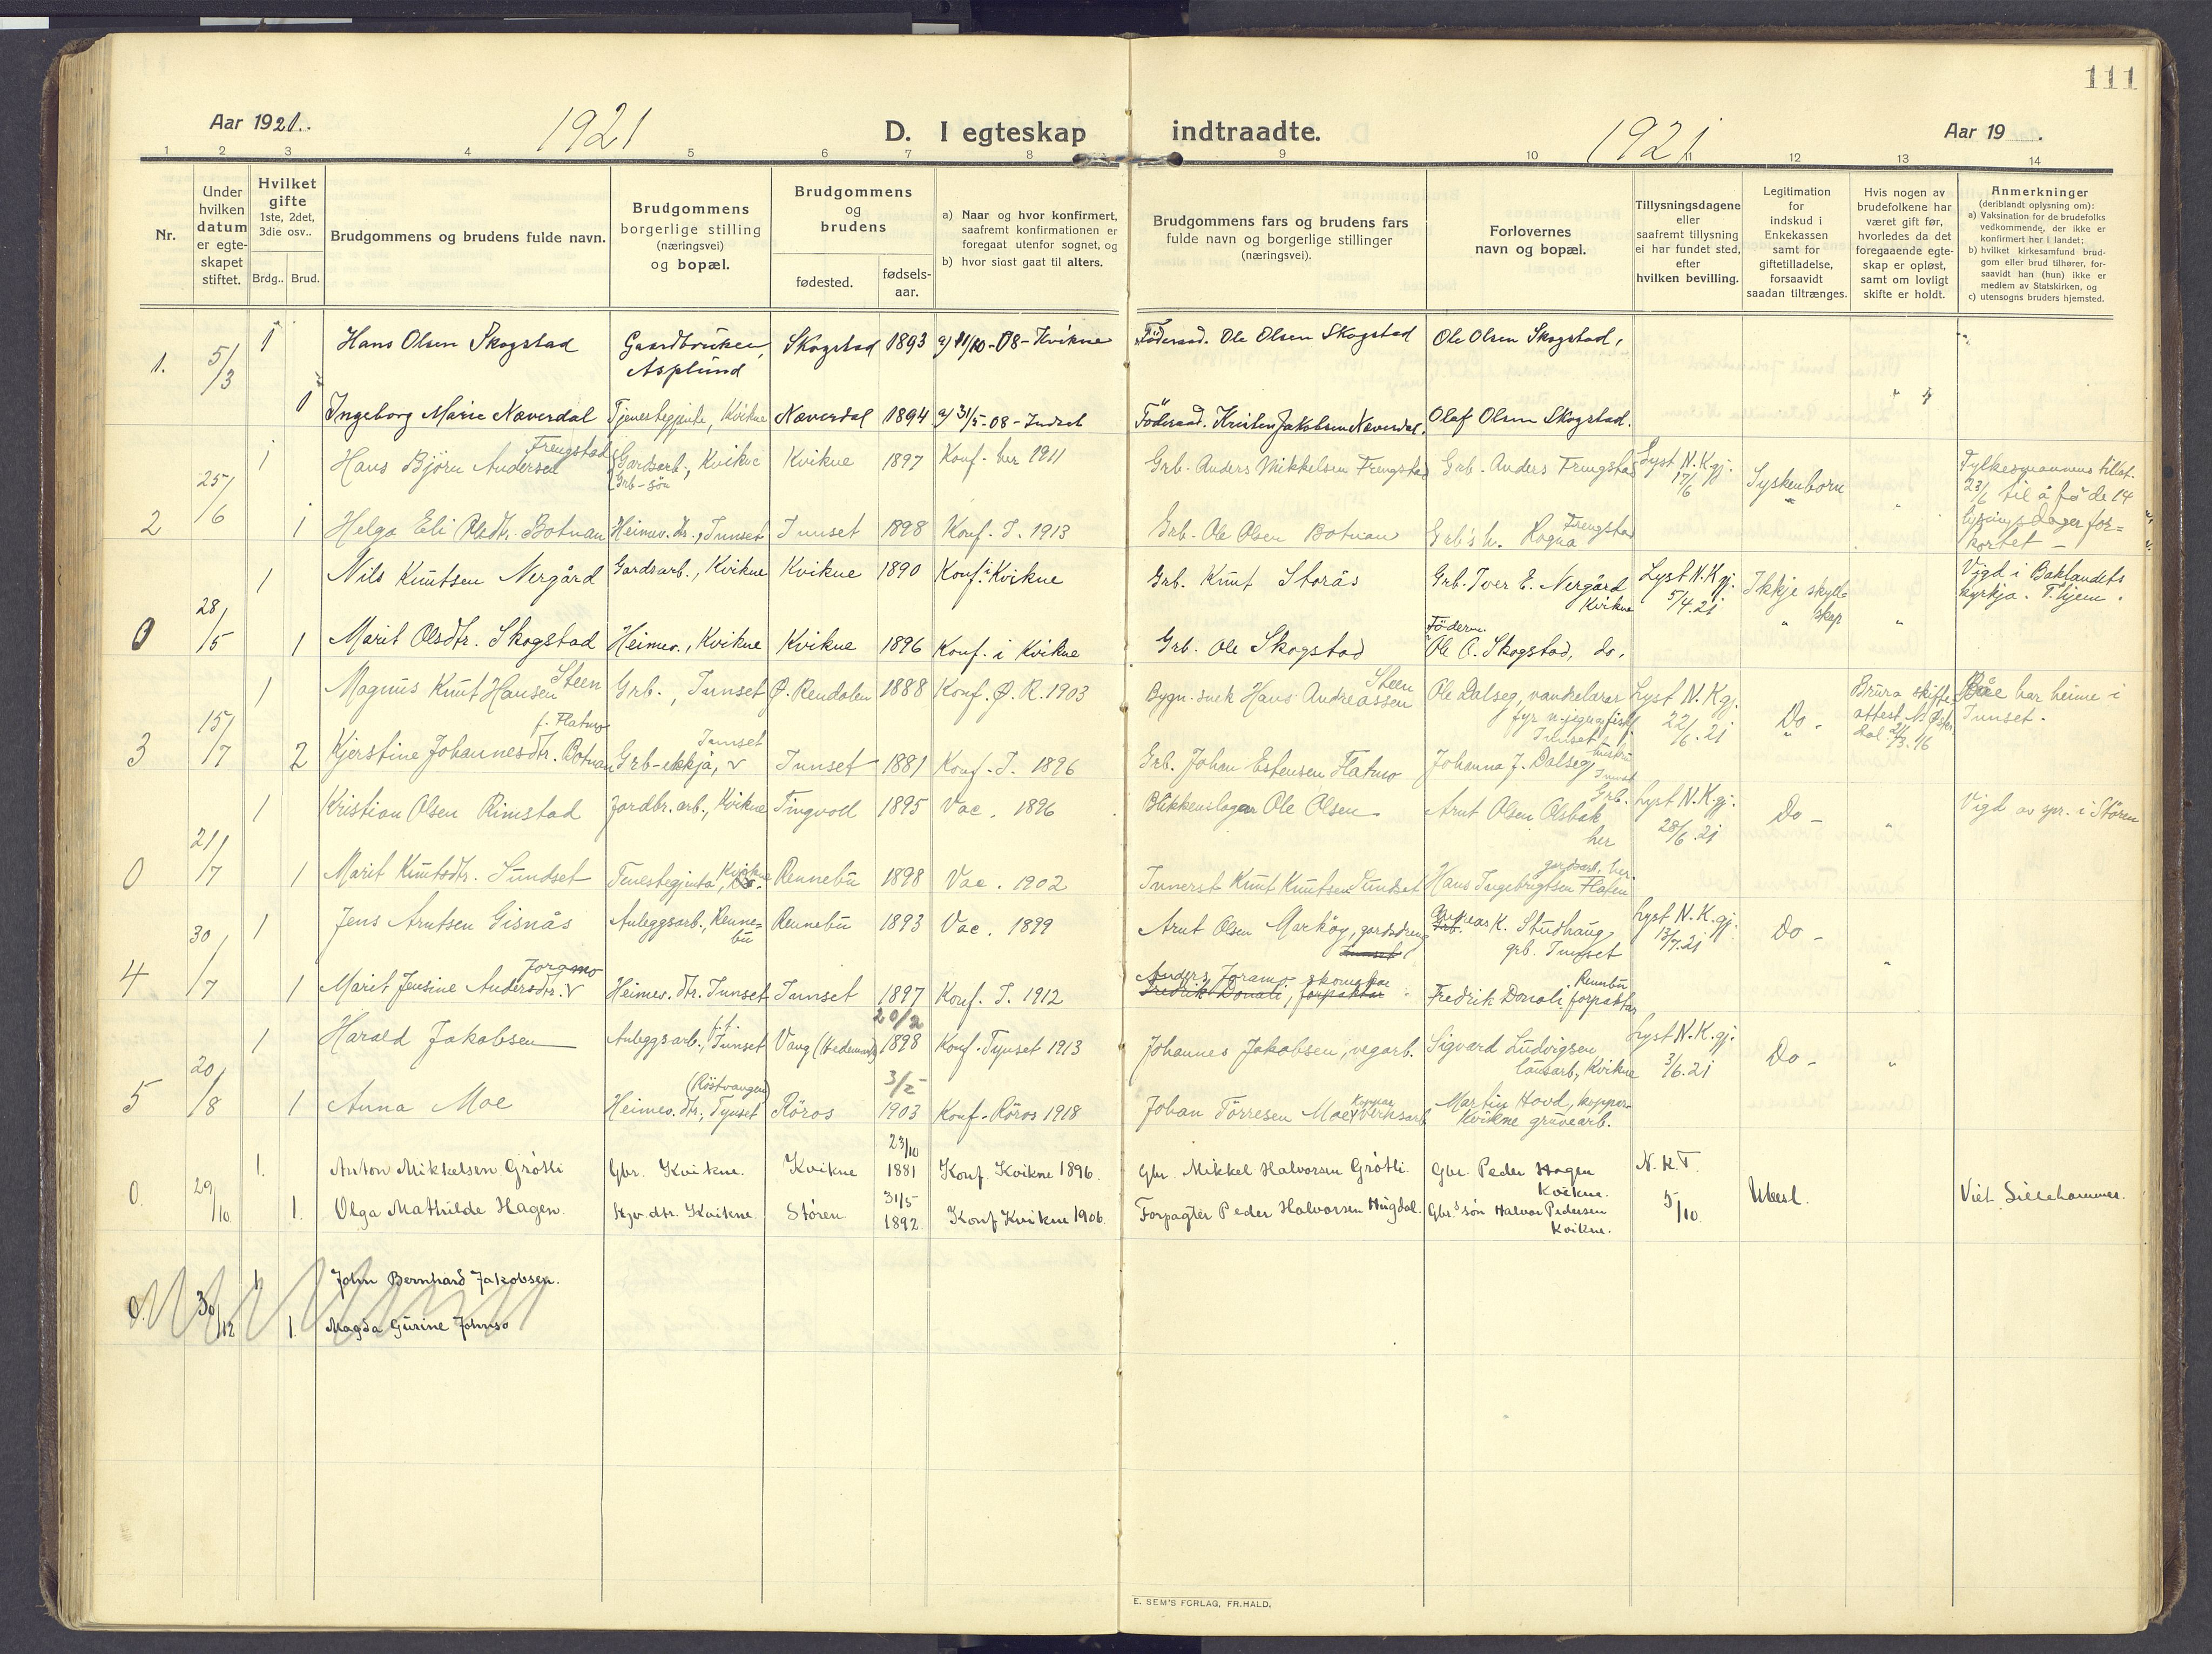 111
Aar 1921.
1921
D. I egteskap
indtraadte.
1921
Aar 19
1 2 3 4 5 6 7 8 9 10 11 12 13 14
Nr.
Under hvilken datum er egte-skapet stiftet.
Hvilket gifte
1ste, 2det, 3die osv..
Brdg.. Brud.
Brudgommens og brudens fulde navn.
Brudgommens borgerlige stilling (næringsvei) og bopæl.
Brudgommens og brudens
fødested.
fødsels-aar.
a) Naar og hvor konfirmert, saafremt konfirmationen er foregaat utenfor sognet, og
b) hvor sidst gaat til alters.
Brudgommens fars og brudens fars fulde navn og borgerlige stillinger (næringsvei).
Forlovernes navn og bopæl.
Tillysningsdagene eller saafremt tillysning ei har fundet sted, efter hvilken bevilling.
Legitimation for indskud i Enkekassen samt for giftetilladelse, forsaavidt saadan tiltrænges.
Hvis nogen av brudefolkene har været gift før, hvorledes da det foregaaende egte-skap er opløst, samt om lovligt skifte er holdt.
Anmerkninger (deriblandt oplysning om):
a) Vaksination for de brudefolks vedkommende, der ikke er konfirmert her i landet;
b) hvilket kirkesamfund brud-gom eller brud tilhører, for-saavidt han (hun) ikke er medlem av Statskirken, og
c) utensogns bruders hjemsted.
1. 5/3 1 Hans Olsen Skogstad Gaardbruker, Asplund Skogstad 1893 a) 11/10-08- Kvikne Föderaad. Ole Olsen Skogstad Ole Olsen Skogstad,
1 Ingeborg Marie Næverdal Tjenestepjente, Kvikne Næverdal 1894 a) 31/5-08- Indset Föderaad. Kristen Jakobsen Næverdal. Olaf Olsen Skogstad.
2 25/6 1 Hans Björn Andersen Frengstad Gardsarb., Kvikne Grb-sön Kvikne 1897 Konf. her 1911 Grb. Anders Mikkelsen Frengstad Grb. Anders Frengstad Lyst N.Kgj. 17/6 Syskenborn Fylkesmannens tillat. 23/6 til å få de 14 lysingsdager for=kortet -
1 Helga Eli Olsdtr. Botnan Heimev. dr., Tunset Tunset 1898 Konf. T. 1913 Grb. Ole Olsen Botnan Grb's h. Ragna Frengstad
0 28/5 1 Nils Knutsen Nergård Gardsarb., Kvikne Kvikne 1890 Konf. i Kvikne Grb. Knut Storås Grb. Iver E. Nergård Kvikne Lyst N.Kgj. 5/4.21 Ikkje skyld=skap Vigd i Baklandets kyrkja. T.hjem.
1 Marit Olsdtr. Skogstad Heimev., Kvikne Kvikne 1896 Konf. i Kvikne Grb. Ole Skogstad Föderm. Ole O. Skogstad, do.
3 15/7 1 Magnus Knut Hansen Steen Grb., Tunset Ø. Rendalen 1888 Konf. Ø. R. 1903 Bygn. snek Hans Andreassen Steen Ole Dalseg, vandrelærar Tunset Lyst N.Kgj. 22/6.21 Do - Brura skifte-attest Båe har heime i Tunset.
2 Kjerstine Johannesdtr. Botnan f. Flatmo Grb-ekkja, Tunset Tunset 1881 Konf. T. 1896 Grb. Johan Estensen Flatmo Johanna J. Dalseg, hustru Tunset
0 21/7 1 Kristian Olsen Rimstad Jordbr. arb., Kvikne Tingvoll 1895 Vac. 1896 Blikkenslagar Ole Olsen Grb. Arnt Olsen Olsbak her Lyst N.Kgj. 28/6.21 Do - Vigd av spr. i Stören
1 Marit Knutsdtr. Sundset Tenestegjenta, Kvikne Rennebu 1898 Vac. 1902 Innerst Knut Knutsen Sundset Hans Ingebrigtsen Flaten gardsarb. her.
4 30/7 1 Jens Arntsen Gisnås Anleggsarb., Renne=bu Rennebu 1893 Vac. 1899 Arnt Olsen Marköy, gardsdreng K. Studhaug grb. Tunset Lyst N.K.gj. 13/7.21 Do -
1 Marit Jensine Andersdtr. Joramo Heimev. dtr. Tunset Tunset 1897 Konf. T. 1912 Anders Joramo skomakar Fredrik Donali, forpaktar Fredrik Donali, forpaktar Rennbu
5 20/8 1 Harald Jakobsen Anleggsarb., Tunset Vang (Hedemark) 20/2 1898 Konf. Tynset 1913 Johannes Jakobsen, vegarb. Sigvard Ludvigsen lausarb., Kvikne Lyst N.K.gj. 3/6.21 Do -
1 Anna Moe Heimev. dtr., Tynset (Röstvangen) Röros 3/5 1903 Konf. Röros 1918 Johan Törresen Moe, Koppar verksarb Martin Hovd, koppar- Kvikne gruvearb.
0. 29/10 1. Anton Mikkelsen Grøtli Gbr. Kvikne. Kvikne 23/10 1881 Konf. Kvikne 1896. Gbr. Mikkel Halvorsen Grøtli. Gbr. Peder Hagen Kvikne. N.K.T. 5/10 Ubesl. Viet Lillehammer.
1. Olga Mathilde Hagen. Hjv. dtr. Kvikne Støren 31/5 1892 Konf Kvikne 1906. Forpagter Peder Halvorsen Hugdal. Gbr's søn Halvor Pedersen Kvikne.
0. 30/12 1 John Bernhard Jakobsen.
1. Magda Gurine Johnso
E. SEM'S FORLAG, FR.HALD.